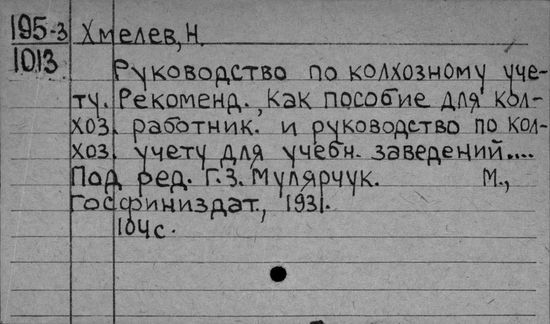 195-3 Хмелев, Н.
1013
Руководство по колхозному уче-
ту. Рекоменд., как пособие для кол-
хоз. работник. и руководство по кол-
хоз. учету для учебн. заведений....
Под ред. Г.З. Мулярчук. М.,
Госфиниздат, 1931.
104с.